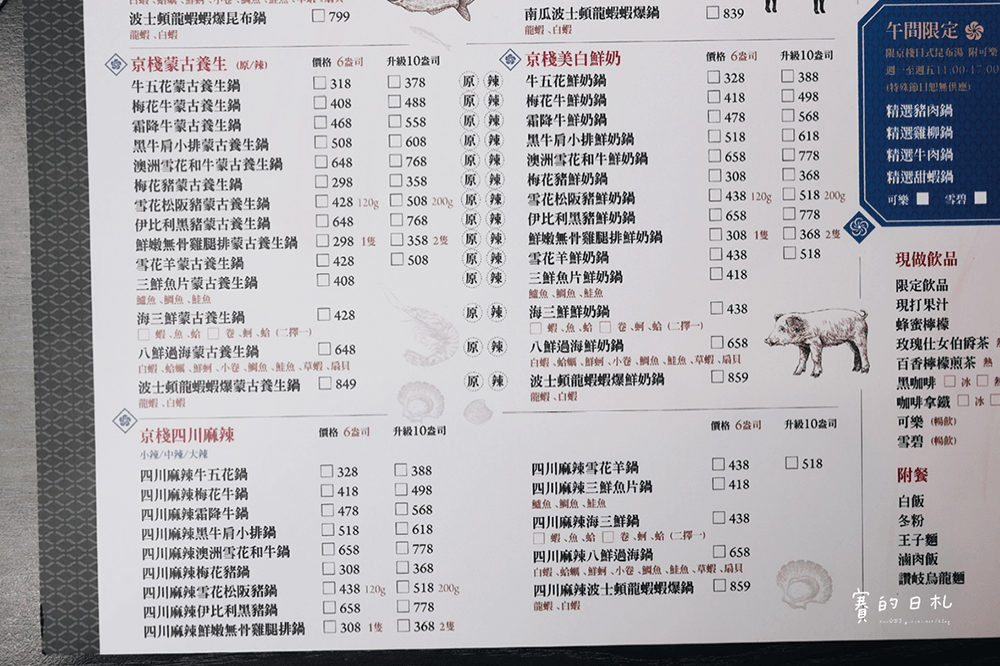 波士頓龍蝦蝦爆昆布鍋 □799
龍蝦、白蝦
南瓜波士頓龍蝦蝦爆鍋 □839
龍蝦、白蝦
京棧蒙古養生 (原/辣) 價格 6盎司 升級10盎司
牛五花蒙古養生鍋 □318 □378 原 辣
梅花牛蒙古養生鍋 □408 □488 原 辣
霜降牛蒙古養生鍋 □468 □558 原 辣
黑牛肩小排蒙古養生鍋 □508 □608 原 辣
澳洲雪花和牛蒙古養生鍋 □648 □768 原 辣
梅花豬蒙古養生鍋 □298 □358 原 辣
雪花松阪豬蒙古養生鍋 □428 120g □508 200g 原 辣
伊比利黑豬蒙古養生鍋 □648 □768 原 辣
鮮嫩無骨雞腿排蒙古養生鍋 □298 1隻 □358 2隻 原 辣
雪花羊蒙古養生鍋 □428 □508 原 辣
三鮮魚片蒙古養生鍋 □408 原 辣
鱸魚、鯛魚、鮭魚
海三鮮蒙古養生鍋 □428 原 辣
□ 蝦、魚、蛤 □ 卷、蚵、蛤 (二擇一)
八鮮過海蒙古養生鍋 □648 原 辣
白蝦、蛤蠣、鮮蚵、小卷、鯛魚、鮭魚、草蝦、扇貝
波士頓龍蝦蝦爆蒙古養生鍋 □849 原 辣
龍蝦、白蝦
京棧美白鮮奶 價格 6盎司 升級10盎司
牛五花鮮奶鍋 □328 □388
梅花牛鮮奶鍋 □418 □498
霜降牛鮮奶鍋 □478 □568
黑牛肩小排鮮奶鍋 □518 □618
澳洲雪花和牛鮮奶鍋 □658 □778
梅花豬鮮奶鍋 □308 □368
雪花松阪豬鮮奶鍋 □438 120g □518 200g
伊比利黑豬鮮奶鍋 □658 □778
鮮嫩無骨雞腿排鮮奶鍋 □308 1隻 □368 2隻
雪花羊鮮奶鍋 □438 □518
三鮮魚片鮮奶鍋 □418
鱸魚、鯛魚、鮭魚
海三鮮鮮奶鍋 □438
□ 蝦、魚、蛤 □ 卷、蚵、蛤 (二擇一)
八鮮過海鮮奶鍋 □658
白蝦、蛤蠣、鮮蚵、小卷、鯛魚、鮭魚、草蝦、扇貝
波士頓龍蝦蝦爆鮮奶鍋 □859
龍蝦、白蝦
京棧四川麻辣 價格 6盎司 升級10盎司
小辣/中辣/大辣
四川麻辣牛五花鍋 □328 □388
四川麻辣梅花牛鍋 □418 □498
四川麻辣霜降牛鍋 □478 □568
四川麻辣黑牛肩小排鍋 □518 □618
四川麻辣澳洲雪花和牛鍋 □658 □778
四川麻辣梅花豬鍋 □308 □368
四川麻辣雪花松阪豬鍋 □438 120g □518 200g
四川麻辣伊比利黑豬鍋 □658 □778
四川麻辣鮮嫩無骨雞腿排鍋 □308 1隻 □368 2隻
價格 6盎司 升級10盎司
四川麻辣雪花羊鍋 □438 □518
四川麻辣三鮮魚片鍋 □418
鱸魚、鯛魚、鮭魚
四川麻辣海三鮮鍋 □438
□ 蝦、魚、蛤 □ 卷、蚵、蛤 (二擇一)
四川麻辣八鮮過海鍋 □658
白蝦、蛤蠣、鮮蚵、小卷、鯛魚、鮭魚、草蝦、扇貝
四川麻辣波士頓龍蝦蝦爆鍋 □859
龍蝦、白蝦
午間限定
限京棧日式昆布湯 附可樂
週一至週五11:00-17:00
(特殊節日恕無供應)
精選豬肉鍋
精選雞柳鍋
精選牛肉鍋
精選甜蝦鍋
可樂 □ 雪碧 □
現做飲品
限定飲品
現打果汁
蜂蜜檸檬
玫瑰仕女伯爵茶 熱
百香檸檬煎茶 熱
黑咖啡 □ 冰 □ 熱
咖啡拿鐵 □ 冰 □
可樂 (暢飲)
雪碧 (暢飲)
附餐
白飯
冬粉
王子麵
滷肉飯
讚岐烏龍麵
賽的日札